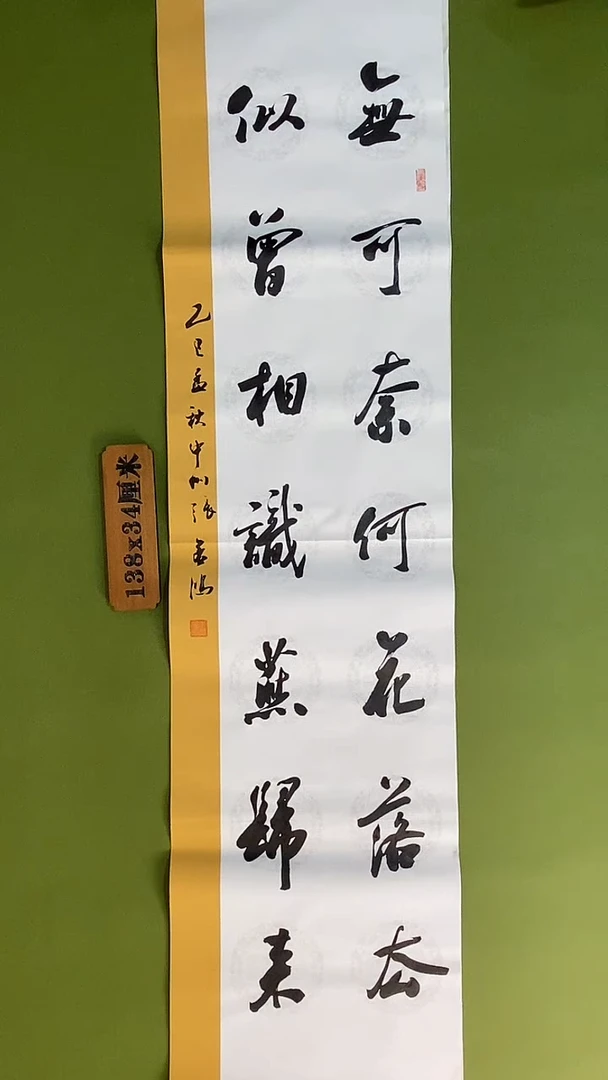 無可奈何花落去
似曾相識燕歸来
乙巳孟秋中州張
138x34厘米